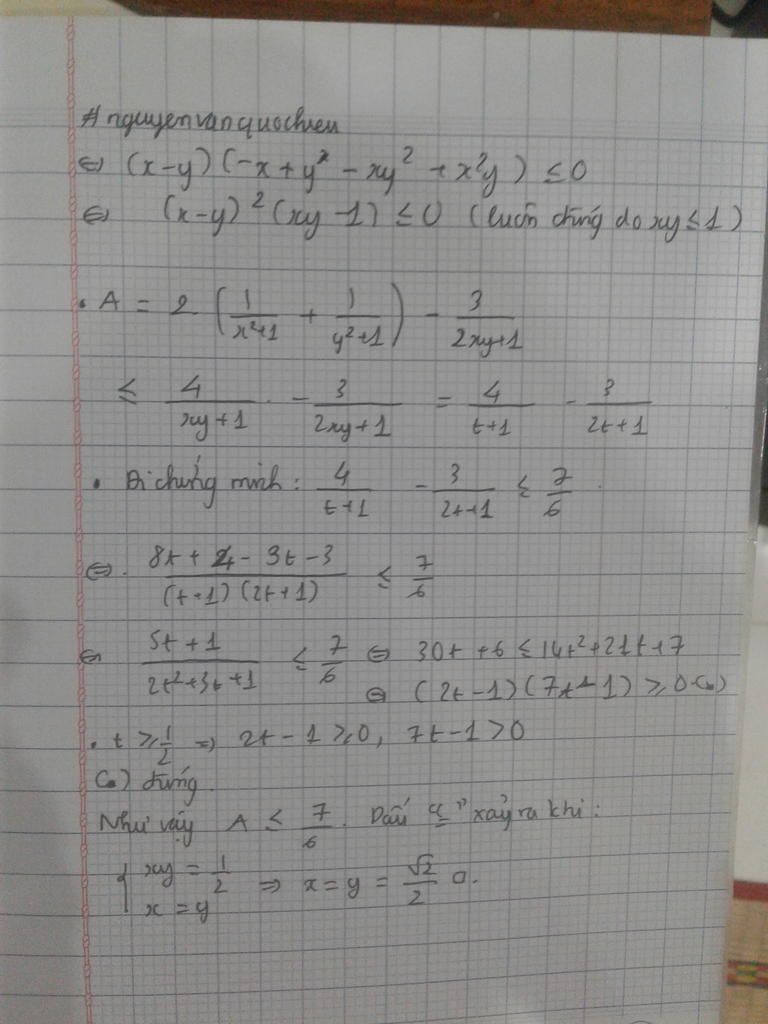 #nguyenvanquochieu
⇔ (x-y)(-x+y - xy² + x²y) ≤ 0
⇔ (x-y)²(xy-1) ≤ 0 (luôn đúng do xy ≤ 1)
• A = 2 (1/(x²+1) + 1/(y²+1)) - 3/(2xy+1)
≤ 4/(xy+1) - 3/(2xy+1) = 4/(t+1) - 3/(2t+1)
• Đi chứng minh: 4/(t+1) - 3/(2t+1) ≤ 7/6
⇔ (8t+4-3t-3)/((t+1)(2t+1)) ≤ 7/6
⇔ (5t+1)/(2t²+3t+1) ≤ 7/6 ⇔ 30t+6 ≤ 14t²+21t+7
⇔ (2t-1)(7t-1) ≥ 0 (•)
• t ≥ 1/2 ⇒ 2t-1 ≥ 0, 7t-1 > 0
(•) đúng.
Như vậy A ≤ 7/6. Dấu "=" xảy ra khi:
{ xy = 1/2
x = y ⇒ x = y = √2/2 □.